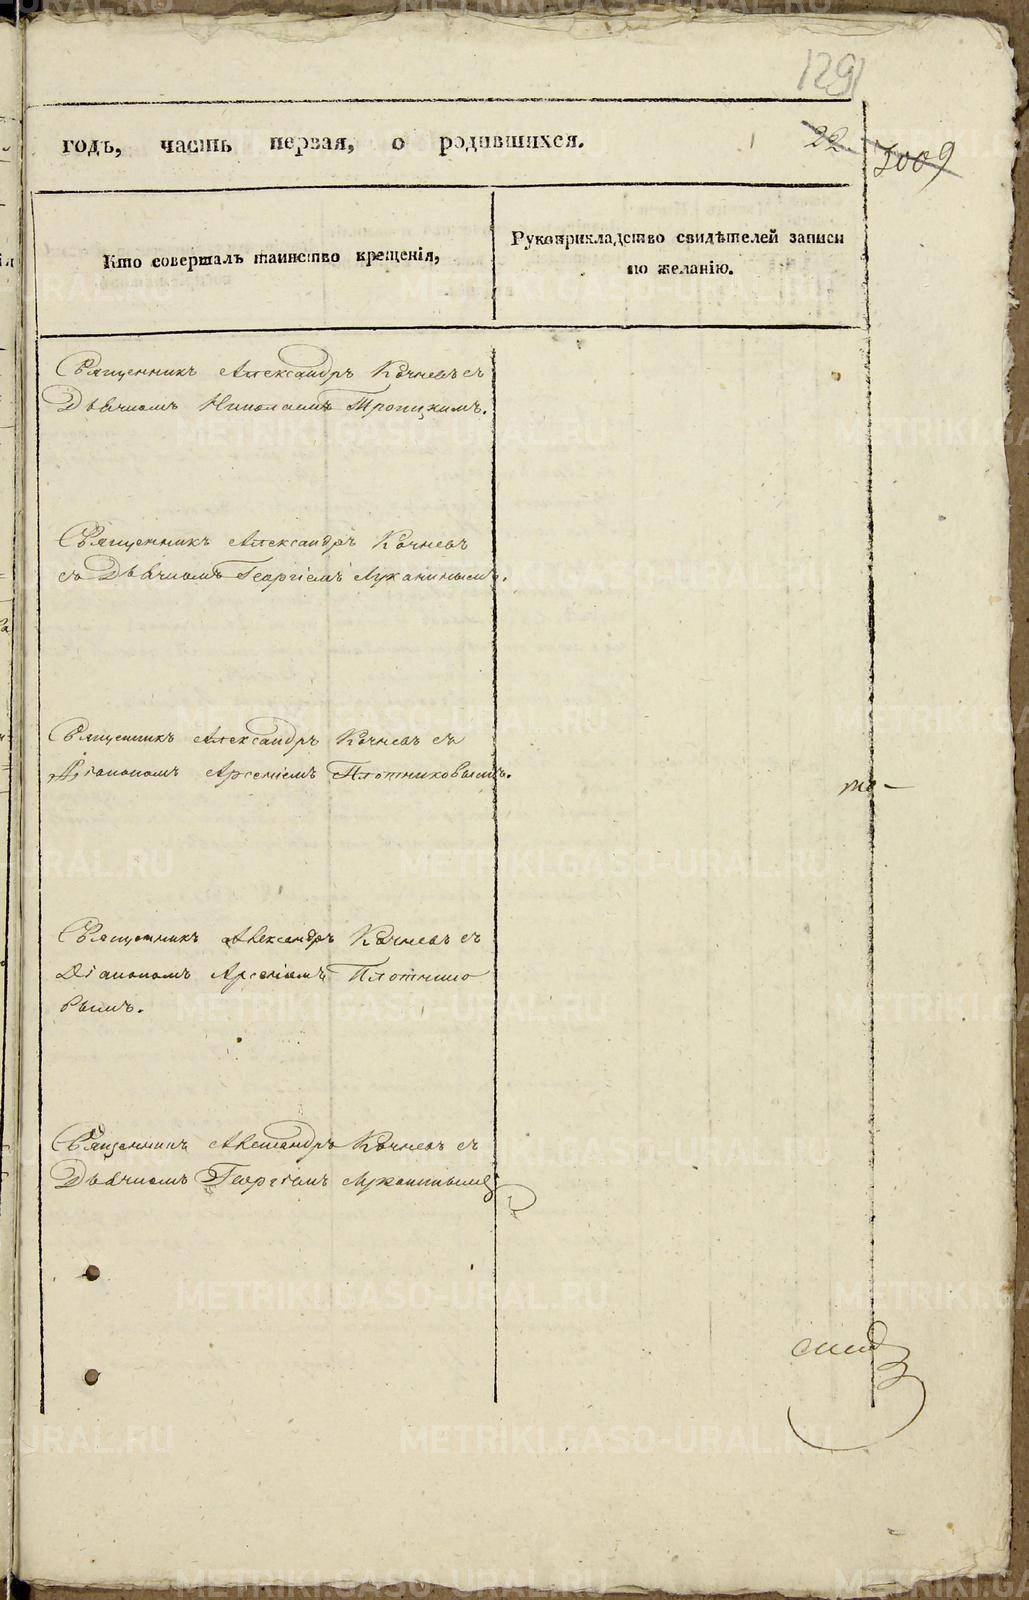 129
годъ, часть первая, о родившихся.
22.
1009
Кто совершалъ таинство крещенія,
Рукоприкладство свидѣтелей записи
по желанію.
Священникъ Александръ Кочневъ съ
Дьячкомъ Николаемъ Троицкимъ.
Священникъ Александръ Кочневъ
съ Дьячкомъ Георгіемъ Луканинымъ.
Священникъ Александръ Кочневъ съ
Діакономъ Арсеніемъ Плотниковымъ.
Священникъ Александръ Кочневъ съ
Діакономъ Арсеніемъ Плотнико
вымъ.
Священникъ Александръ Кочневъ съ
Дьячкомъ Георгіемъ Луканинымъ
METRIKI.GASO-URAL.RU